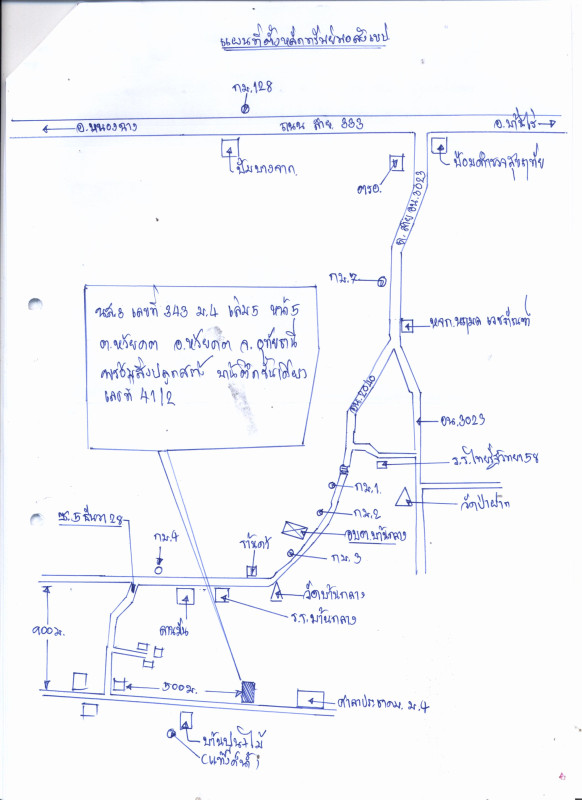 แผนที่ตั้งหลักทรัพย์พอสังเขป
กม.128
อ.หนองฉาง
ถนน สาย 333
อ.บ้านไร่
ปั๊มบางจาก
ตรอ.
ป้อมตำรวจสุขฤทัย
ถ. สาย อน.3023
กม.7
นส.3 เลขที่ 343 ม.4 เล่ม 5 หน้า 5
ต.ห้วยคต อ.ห้วยคต จ.อุทัยธานี
พร้อมสิ่งปลูกสร้าง บ้านตึกชั้นเดียว
เลขที่ 41/2
หจก.นฤมล เวชภัณฑ์
อน.2040
อน.3023
ร.ร.ไทยรัฐวิทยา 58
กม.1
กม.2
วัดป่าผาก
อบต.บ้านกลาง
กม.3
ซ.5 ธันวา 28
กม.4
ร้านค้า
วัดบ้านกลาง
ลานมัน
ร.ร.บ้านกลาง
900 ม.
500 ม.
ศาลาประชาคม ม.4
บ้านปูน+ไม้